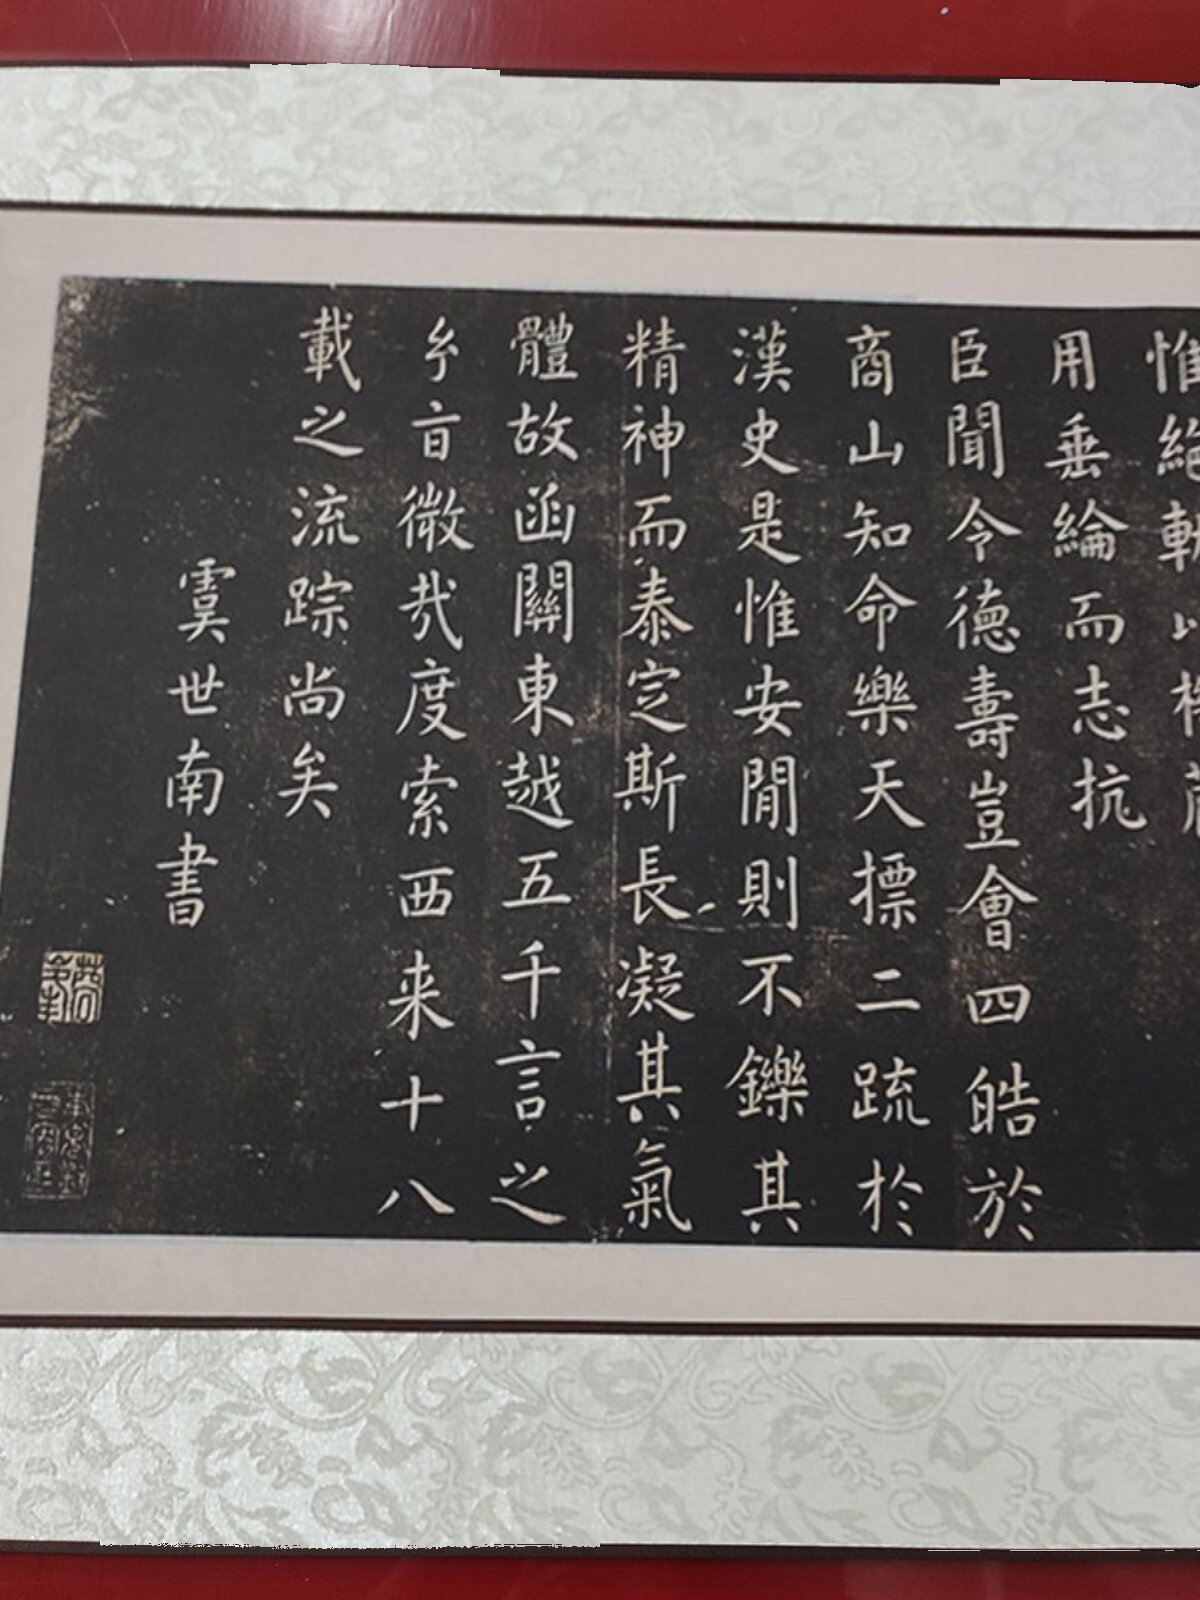 惟絶軌以
用垂綸而志抗
臣聞令德壽豈會四皓於
商山知命樂天標二疏於
漢史是惟安閒則不鑠其
精神而泰定斯長凝其氣
體故函關東越五千言之
兮盲微哉度索西来十八
載之流踪尚矣
虞世南書